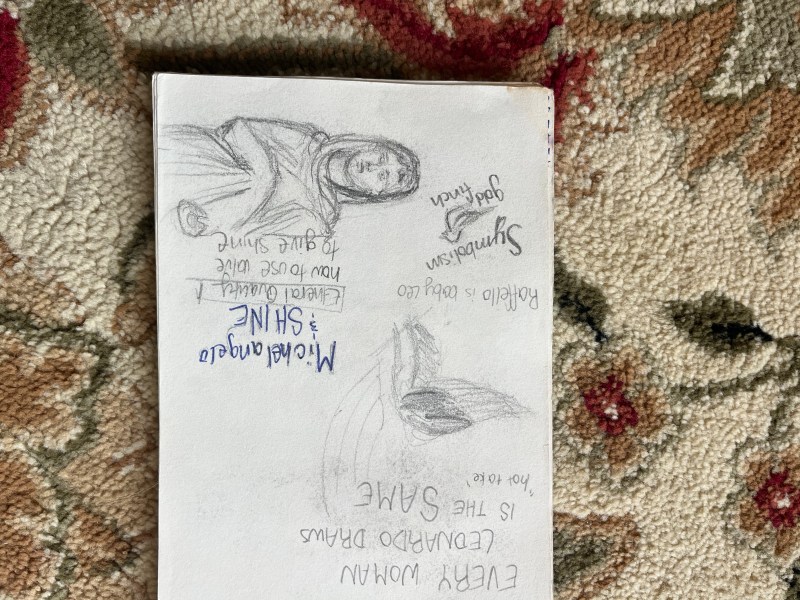 EVERY WOMAN
LEONARDO DRAWS
IS THE SAME
"hot take"
Raffello is baby Leo
Symbolism
gold finch
Michelangelo
& SHINE
Ethereal Quality
how to use value
to give shine